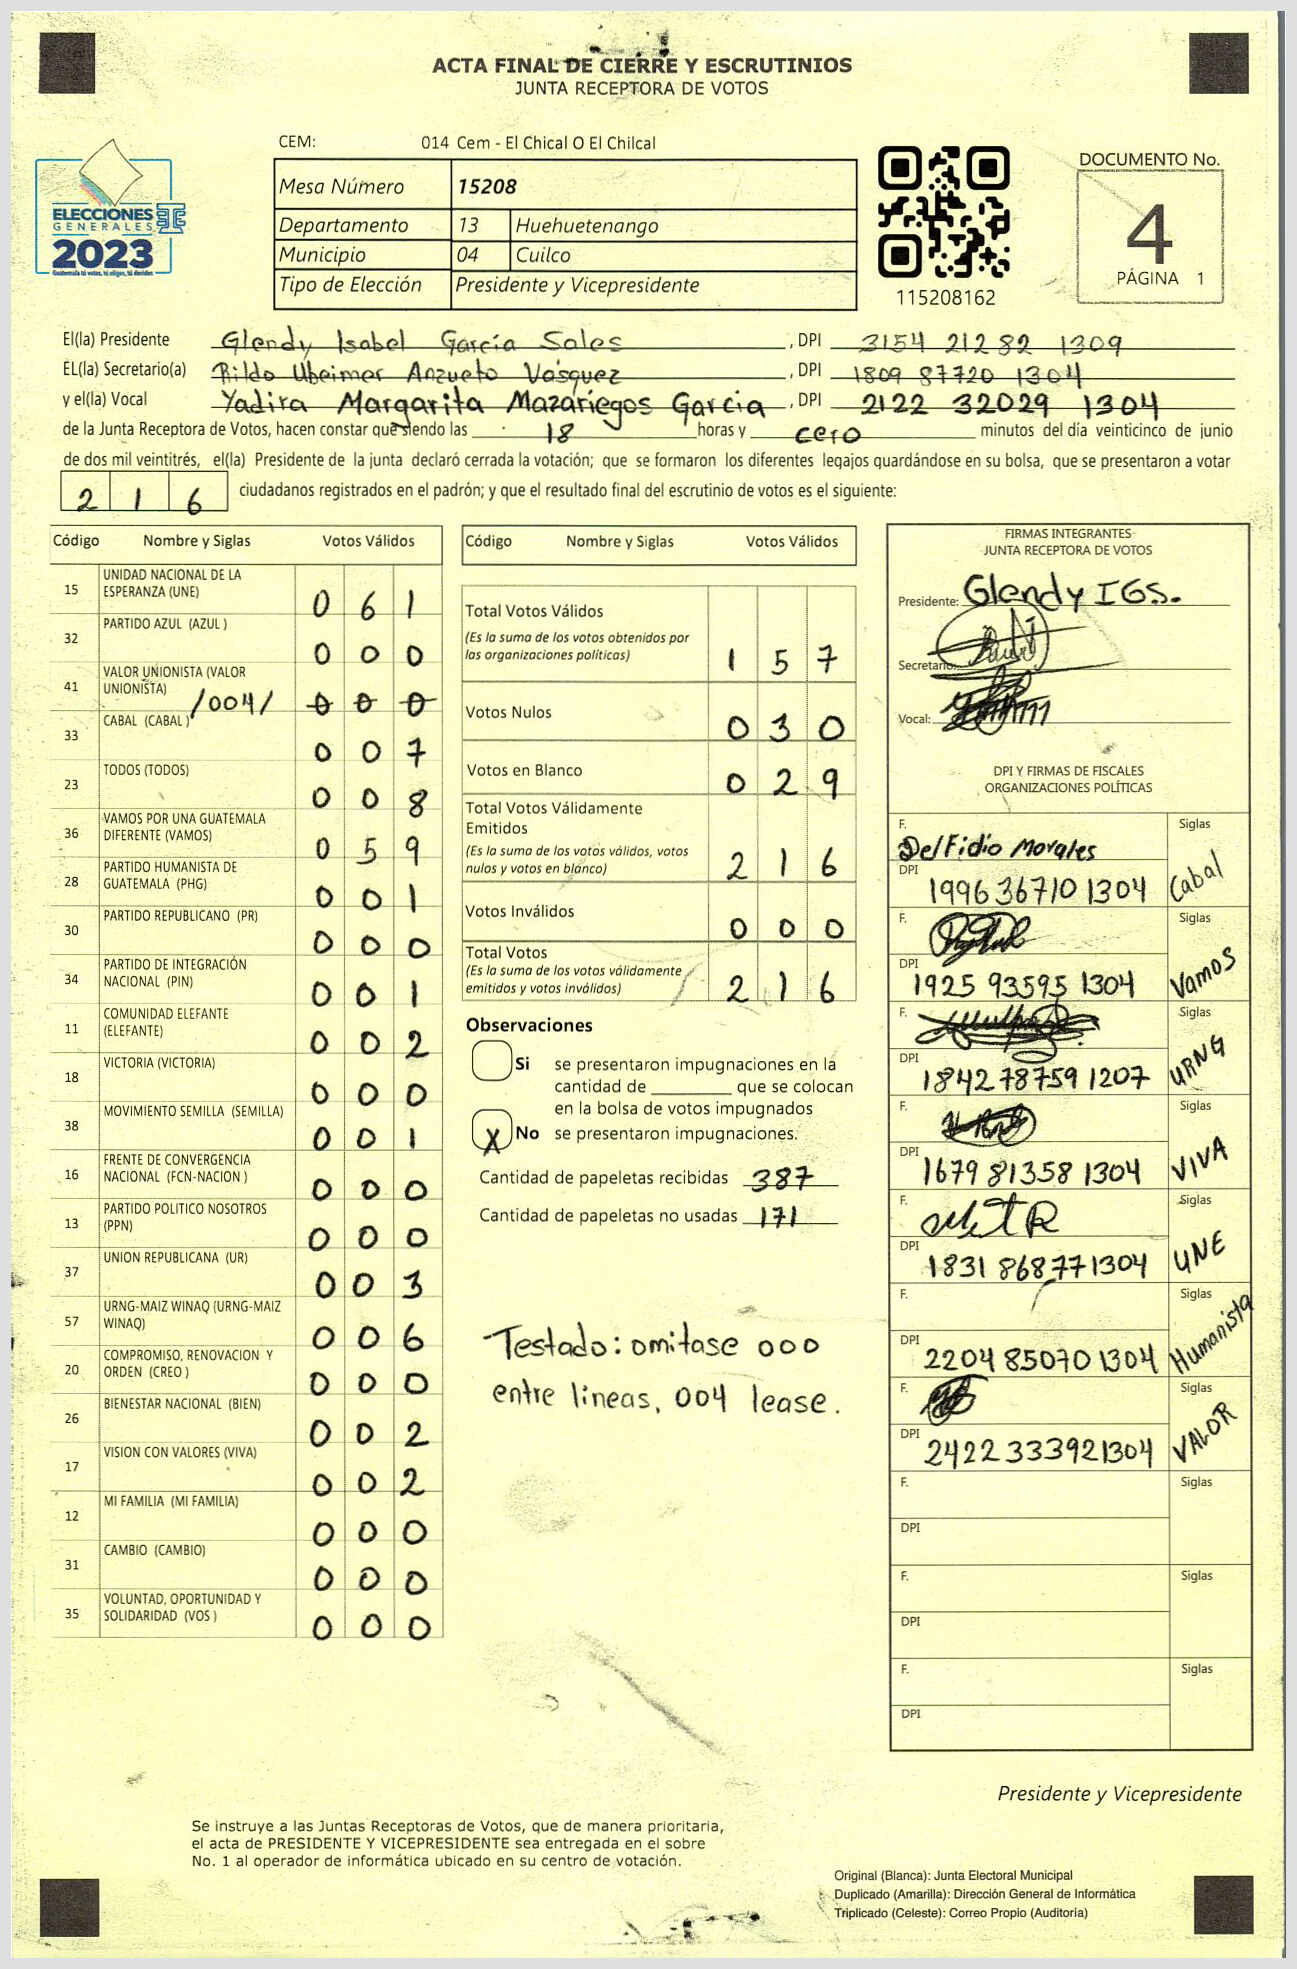 ACTA FINAL DE CIERRE Y ESCRUTINIOS
JUNTA RECEPTORA DE VOTOS
CEM: 014 Cem - El Chical O El Chilcal
ELECCIONES
GENERALES
2023
Guatemala tú votas, tú eliges, tú decides
Mesa Número 15208
Departamento 13 Huehuetenango
Municipio 04 Cuilco
Tipo de Elección Presidente y Vicepresidente
115208162
DOCUMENTO No.
4
PÁGINA 1
El(la) Presidente Glendy Isabel García Sales, DPI 3154 21282 1309
EL(la) Secretario(a) Rildo Ubeimer Anzueto Vásquez, DPI 1809 87720 1304
y el(la) Vocal Yadira Margarita Mazariegos Garcia, DPI 2122 32029 1304
de la Junta Receptora de Votos, hacen constar que siendo las 18 horas y cero minutos del día veinticinco de junio
de dos mil veintitrés, el(la) Presidente de la junta declaró cerrada la votación; que se formaron los diferentes legajos guardándose en su bolsa, que se presentaron a votar
2 1 6 ciudadanos registrados en el padrón; y que el resultado final del escrutinio de votos es el siguiente:
Código Nombre y Siglas Votos Válidos
15 UNIDAD NACIONAL DE LA
ESPERANZA (UNE) 0 6 1
32 PARTIDO AZUL (AZUL ) 0 0 0
41 VALOR UNIONISTA (VALOR
UNIONISTA) /004/ 0 0 0
33 CABAL (CABAL ) 0 0 7
23 TODOS (TODOS) 0 0 8
36 VAMOS POR UNA GUATEMALA
DIFERENTE (VAMOS) 0 5 9
28 PARTIDO HUMANISTA DE
GUATEMALA (PHG) 0 0 1
30 PARTIDO REPUBLICANO (PR) 0 0 0
34 PARTIDO DE INTEGRACIÓN
NACIONAL (PIN) 0 0 1
11 COMUNIDAD ELEFANTE
(ELEFANTE) 0 0 2
18 VICTORIA (VICTORIA) 0 0 0
38 MOVIMIENTO SEMILLA (SEMILLA) 0 0 1
16 FRENTE DE CONVERGENCIA
NACIONAL (FCN-NACION ) 0 0 0
13 PARTIDO POLITICO NOSOTROS
(PPN) 0 0 0
37 UNION REPUBLICANA (UR) 0 0 3
57 URNG-MAIZ WINAQ (URNG-MAIZ
WINAQ) 0 0 6
20 COMPROMISO, RENOVACION Y
ORDEN (CREO ) 0 0 0
26 BIENESTAR NACIONAL (BIEN) 0 0 2
17 VISION CON VALORES (VIVA) 0 0 2
12 MI FAMILIA (MI FAMILIA) 0 0 0
31 CAMBIO (CAMBIO) 0 0 0
35 VOLUNTAD, OPORTUNIDAD Y
SOLIDARIDAD (VOS ) 0 0 0
Código Nombre y Siglas Votos Válidos
Total Votos Válidos
(Es la suma de los votos obtenidos por
las organizaciones políticas) 1 5 7
Votos Nulos 0 3 0
Votos en Blanco 0 2 9
Total Votos Válidamente
Emitidos
(Es la suma de los votos válidos, votos
nulos y votos en blanco) 2 1 6
Votos Inválidos 0 0 0
Total Votos
(Es la suma de los votos válidamente
emitidos y votos inválidos) 2 1 6
Observaciones
Si se presentaron impugnaciones en la
cantidad de ________ que se colocan
en la bolsa de votos impugnados
X No se presentaron impugnaciones.
Cantidad de papeletas recibidas 387
Cantidad de papeletas no usadas 171
Testado: omitase 000
entre lineas, 004 lease.
FIRMAS INTEGRANTES
JUNTA RECEPTORA DE VOTOS
Presidente: Glendy IGS.
Secretario:
Vocal:
DPI Y FIRMAS DE FISCALES
ORGANIZACIONES POLÍTICAS
F. Delfidio Morales Siglas
DPI 1996 36710 1304 Cabal
F. Siglas
DPI 1925 93595 1304 Vamos
F. Siglas
DPI 1842 78759 1207 URNG
F. Siglas
DPI 1679 81358 1304 VIVA
F. Siglas
DPI 1831 86877 1304 UNE
F. Siglas
DPI 2204 85070 1304 Humanista
F. Siglas
DPI 2422 33392 1304 VALOR
F. Siglas
DPI
F. Siglas
DPI
F. Siglas
DPI
Presidente y Vicepresidente
Se instruye a las Juntas Receptoras de Votos, que de manera prioritaria,
el acta de PRESIDENTE Y VICEPRESIDENTE sea entregada en el sobre
No. 1 al operador de informática ubicado en su centro de votación.
Original (Blanca): Junta Electoral Municipal
Duplicado (Amarilla): Dirección General de Informática
Triplicado (Celeste): Correo Propio (Auditoría)